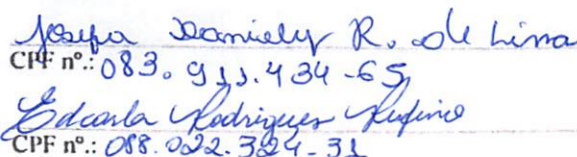 Josefa Daniely R. de Lima
CPF nº.: 083.911.434-65
Edcarla Rodrigues Rufino
CPF nº.: 088.022.324-31